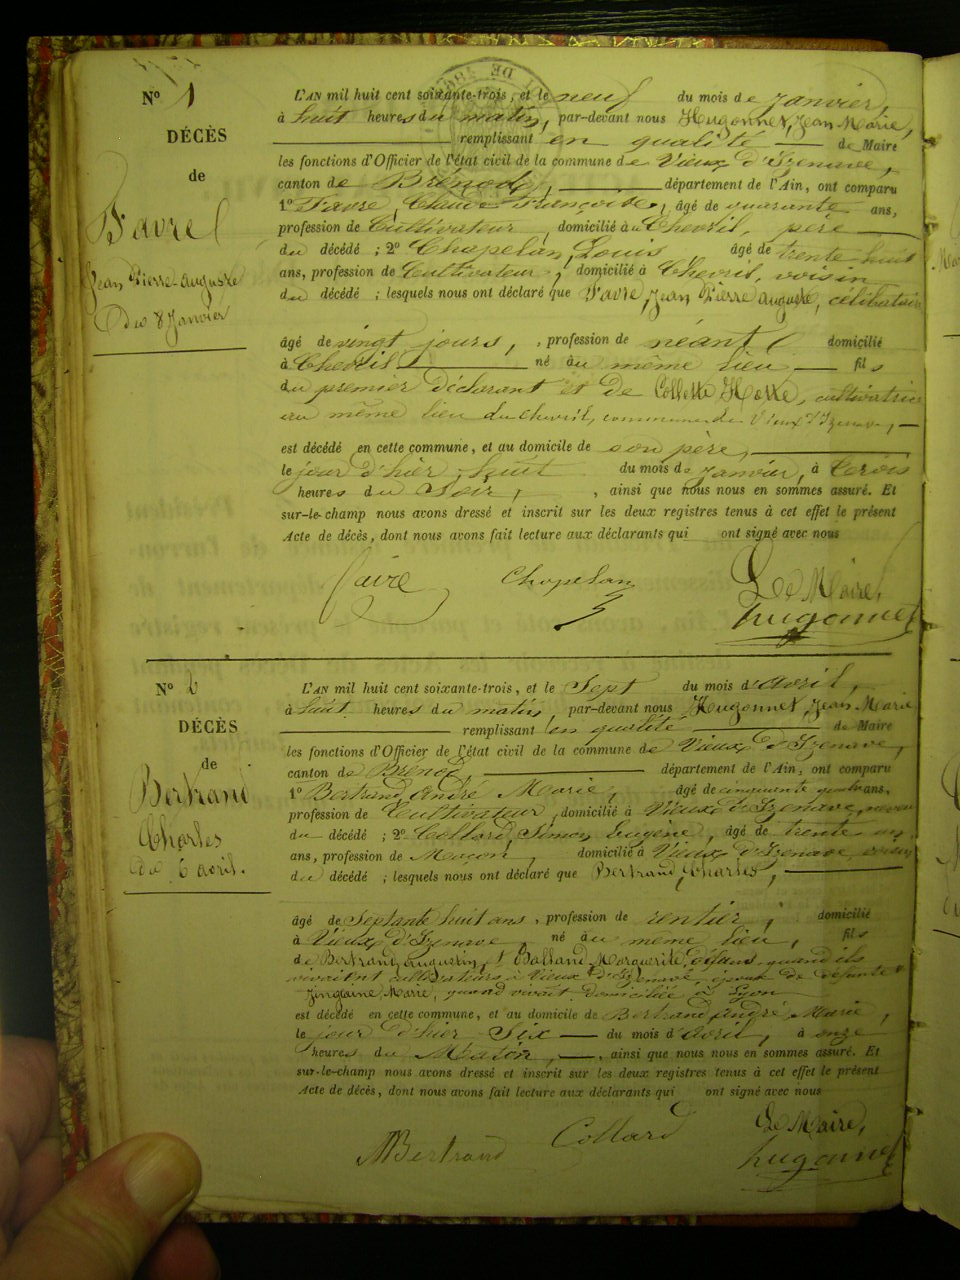 N° 1
DÉCÈS
de
Favre
Jean Pierre auguste
Du 8 Janvier
L'AN mil huit cent soixante-trois, et le neuf du mois de Janvier,
à huit heures du matin, par-devant nous Hugonnet, Jean Marie,
remplissant en qualité de Maire
les fonctions d'Officier de l'état civil de la commune de Vieux d'Izenave,
canton de Brénod, département de l'Ain, ont comparu
1° Favre, Claude Françoise, âgé de quarante ans,
profession de Cultivateur, domicilié à Chevril, père
du décédé ; 2° Chapelan, Louis âgé de trente huit
ans, profession de Cultivateur, domicilié à Chevril, voisin
du décédé ; lesquels nous ont déclaré que Favre, Jean Pierre auguste, célibataire
âgé de vingt jours, profession de néant domicilié
à Chevril né au même lieu fils
du premier déclarant et de Collette Hotte, cultivatrice
au même lieu du Chevril, commune de Vieux d'Izenave,
est décédé en cette commune, et au domicile de son père,
le jour d'hier, huit du mois de Janvier, à trois
heures du Soir, , ainsi que nous nous en sommes assuré. Et
sur-le-champ nous avons dressé et inscrit sur les deux registres tenus à cet effet le présent
Acte de décès, dont nous avons fait lecture aux déclarants qui ont signé avec nous
Favre Chapelan Le Maire,
hugonnet
N° 2
DÉCÈS
de
Bertrand
Charles
du 6 avril.
L'AN mil huit cent soixante-trois, et le Sept du mois d'avril,
à huit heures du matin, par-devant nous Hugonnet, Jean Marie
remplissant en qualité de Maire
les fonctions d'Officier de l'état civil de la commune de Vieux d'Izenave,
canton de Brénod département de l'Ain, ont comparu
1° Bertrand André Marie, âgé de cinquante quatre ans,
profession de Cultivateur, domicilié à Vieux d'Izenave, neveu
du décédé ; 2° Collard, Simon Eugène, âgé de trente un
ans, profession de Maçon, domicilié à Vieux d'Izenave, voisin
du décédé ; lesquels nous ont déclaré que Bertrand, Charles,
âgé de Septante huit ans, profession de rentier, domicilié
à Vieux d'Izenave, né au même lieu, fils
de Bertrand, augustin, et Balland, Marguerite, défunts, quand ils
vivaient cultivateurs à Vieux d'Izenave, époux de défunte
Marie, quand vivait domiciliée à Lyon
est décédé en cette commune, et au domicile de Bertrand André Marie,
le jour d'hier Six du mois d'avril, à onze
heures du Matin, , ainsi que nous nous en sommes assuré. Et
sur-le-champ nous avons dressé et inscrit sur les deux registres tenus à cet effet le présent
Acte de décès, dont nous avons fait lecture aux déclarants qui ont signé avec nous
Bertrand Collard Le Maire,
hugonnet